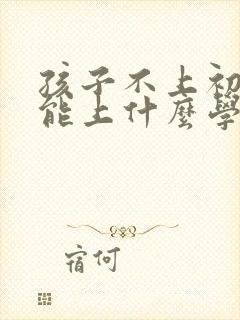 孩子不上初
能上什麼學
宿何